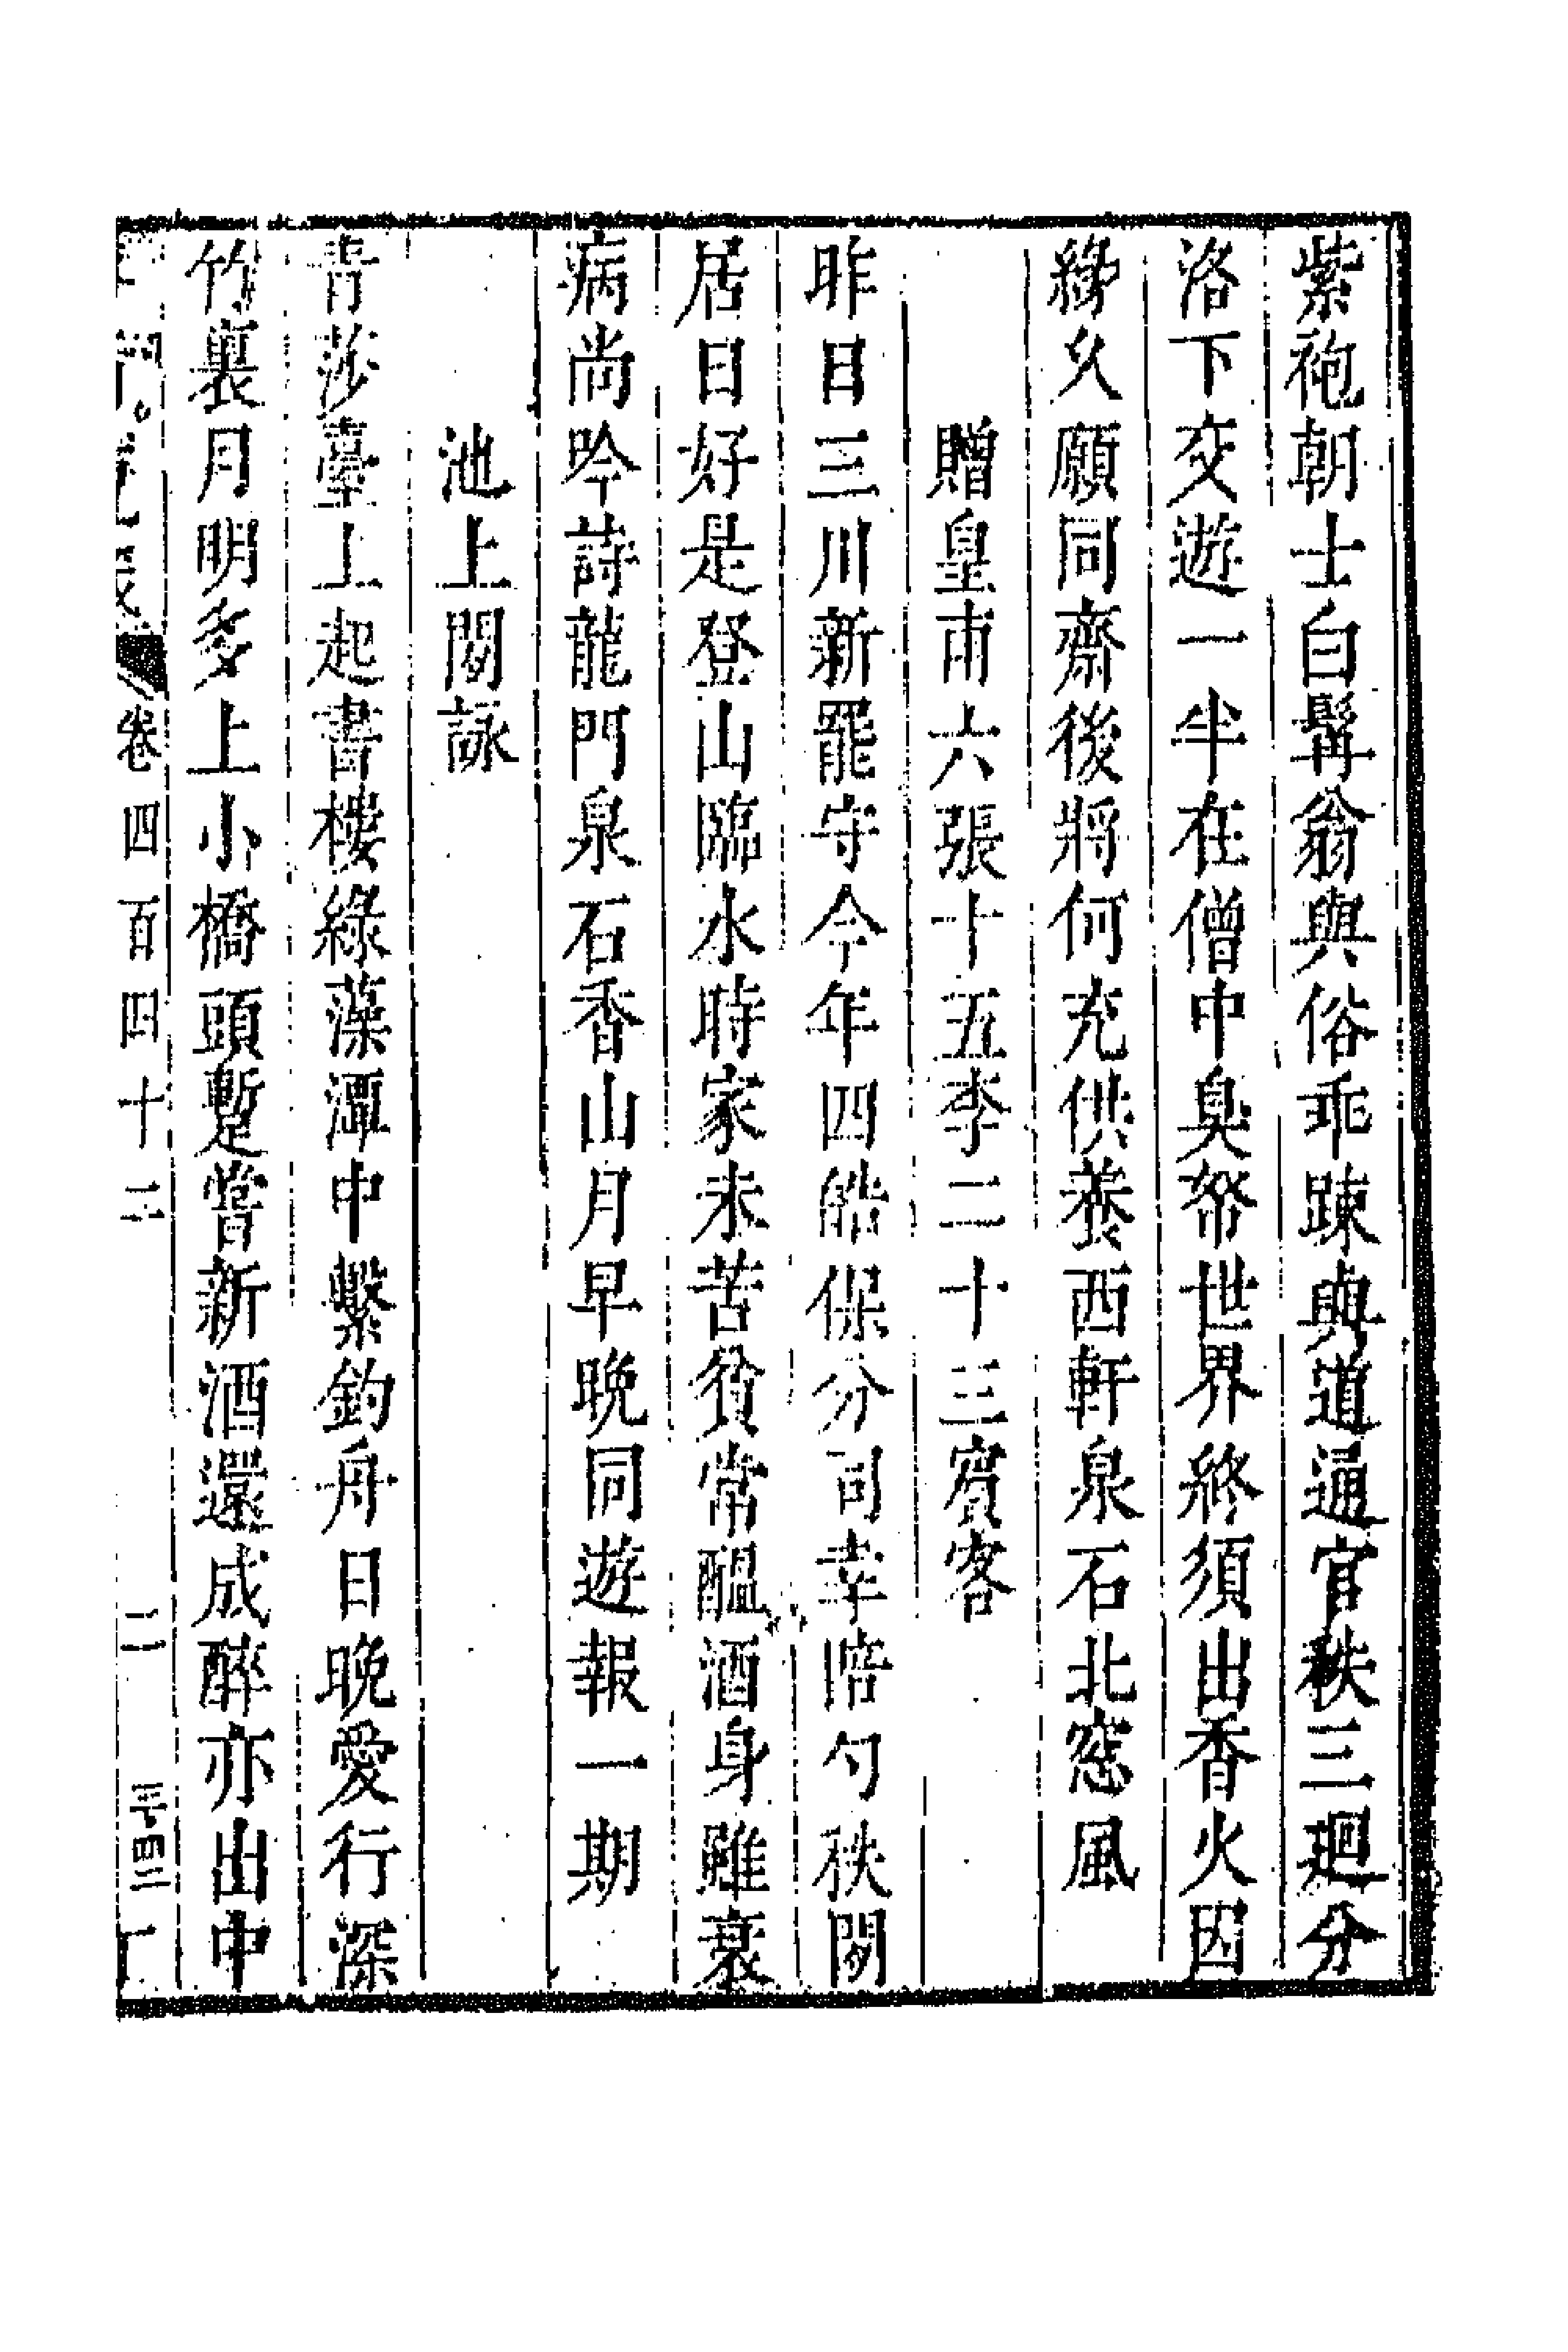 紫袍朝士白髯翁與俗乖踈與道通官秩三廻分
洛下交遊一半在僧中臭帑世界終須出香火因
緣久願同齋後將何充供養西軒泉石北窓風
贈皇甫六張十五李二十三賓客
昨日三川新罷守今年四皓保分司幸陪勺秩閑
居日好是登山臨水時家未苦貧常醞酒身雖衰
病尚吟詩龍門泉石香山月早晚同遊報一期
池上閑詠
青莎臺上起書樓綠藻潭中繫釣舟日晚愛行深
竹裏月明多上小橋頭暫嘗新酒還成醉亦出中
卷四百四十二 二